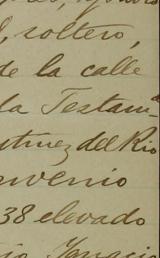 l, soltero,
de la calle
la Testam
utinez del Rio
nvenio
38 elevado
Ignacio